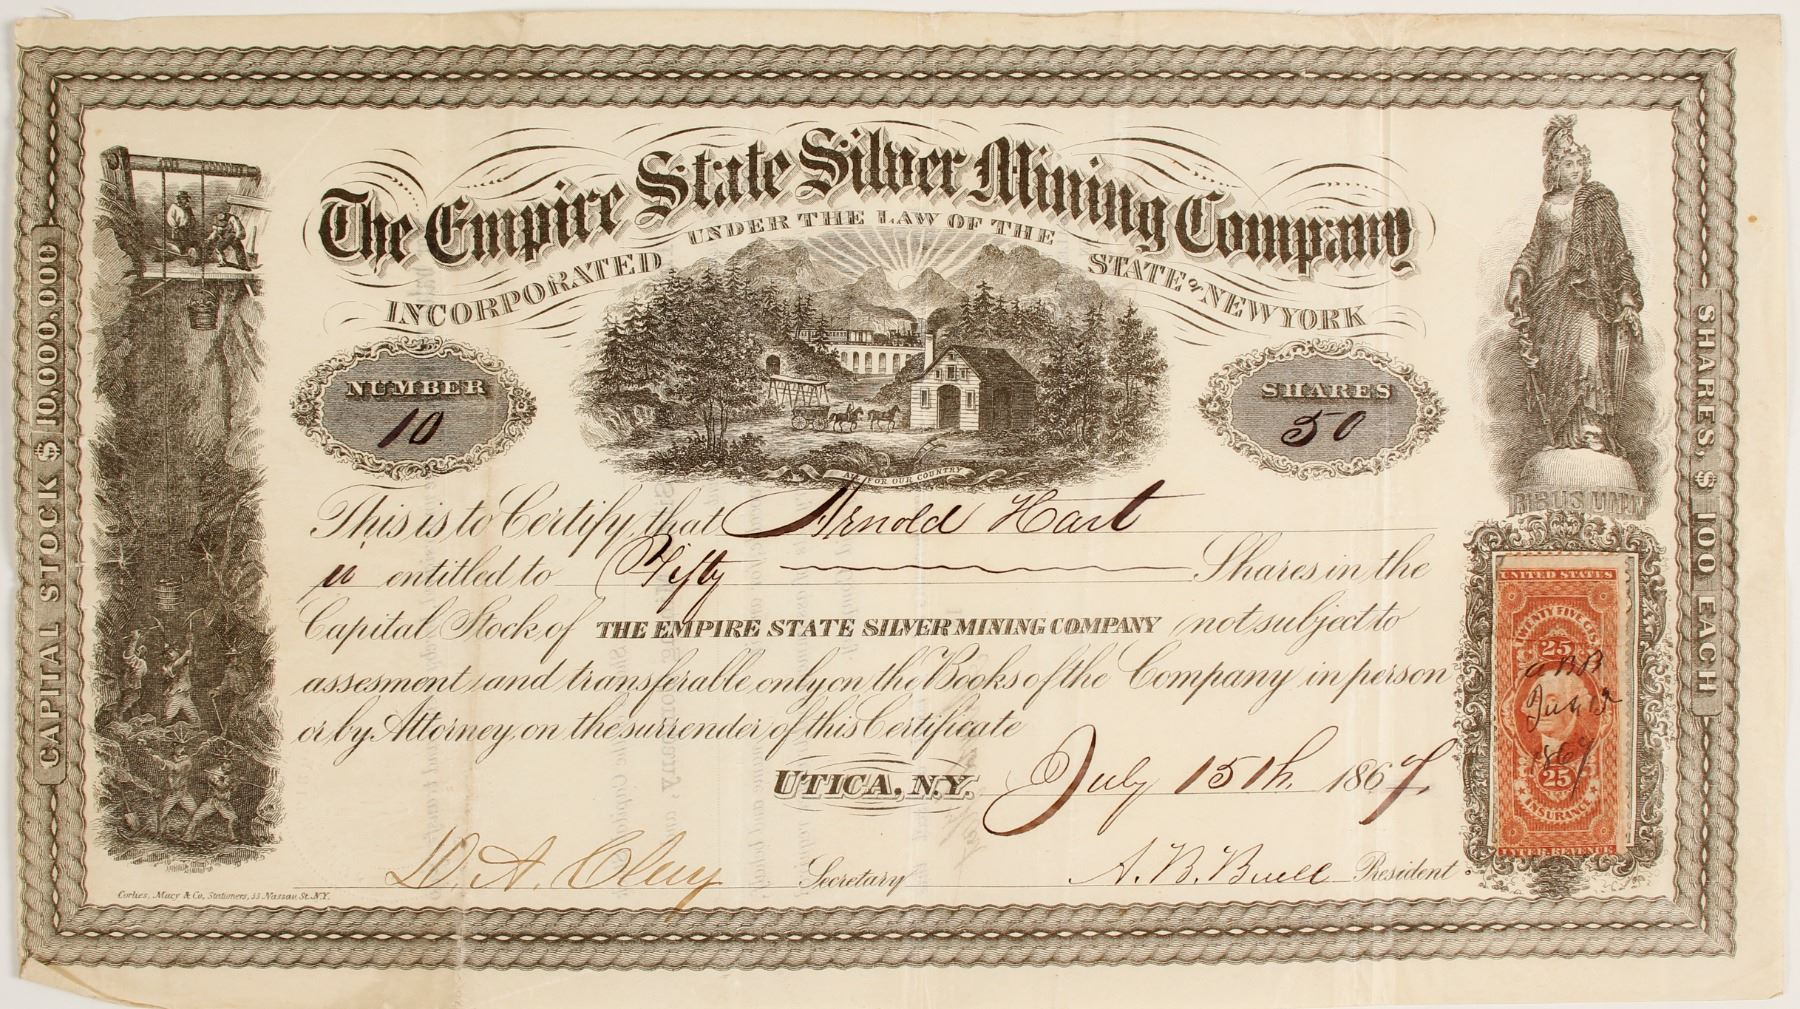 The Empire State Silver Mining Company
INCORPORATED UNDER THE LAW OF THE STATE OF NEW YORK
CAPITAL STOCK $ 10,000,000
SHARES, $ 100 EACH
NUMBER
10
SHARES
50
ALL FOR OUR COUNTRY
This is to Certify, that Arnold Hart
is entitled to Fifty Shares in the
Capital Stock of THE EMPIRE STATE SILVER MINING COMPANY (not subject to
assesment) and transferable only on the Books of the Company in person
or by Attorney on the surrender of this Certificate
UTICA, N.Y. July 15th 1867.
Secretary
A. B. Buell President
Corlies, Macy & Co, Stationers, 33 Nassau St. N.Y.
RIBUS UNU
UNITED STATES
TWENTY FIVE CTS
25
ABB
July 12
1867
25
INSURANCE
INTER. REVENUE